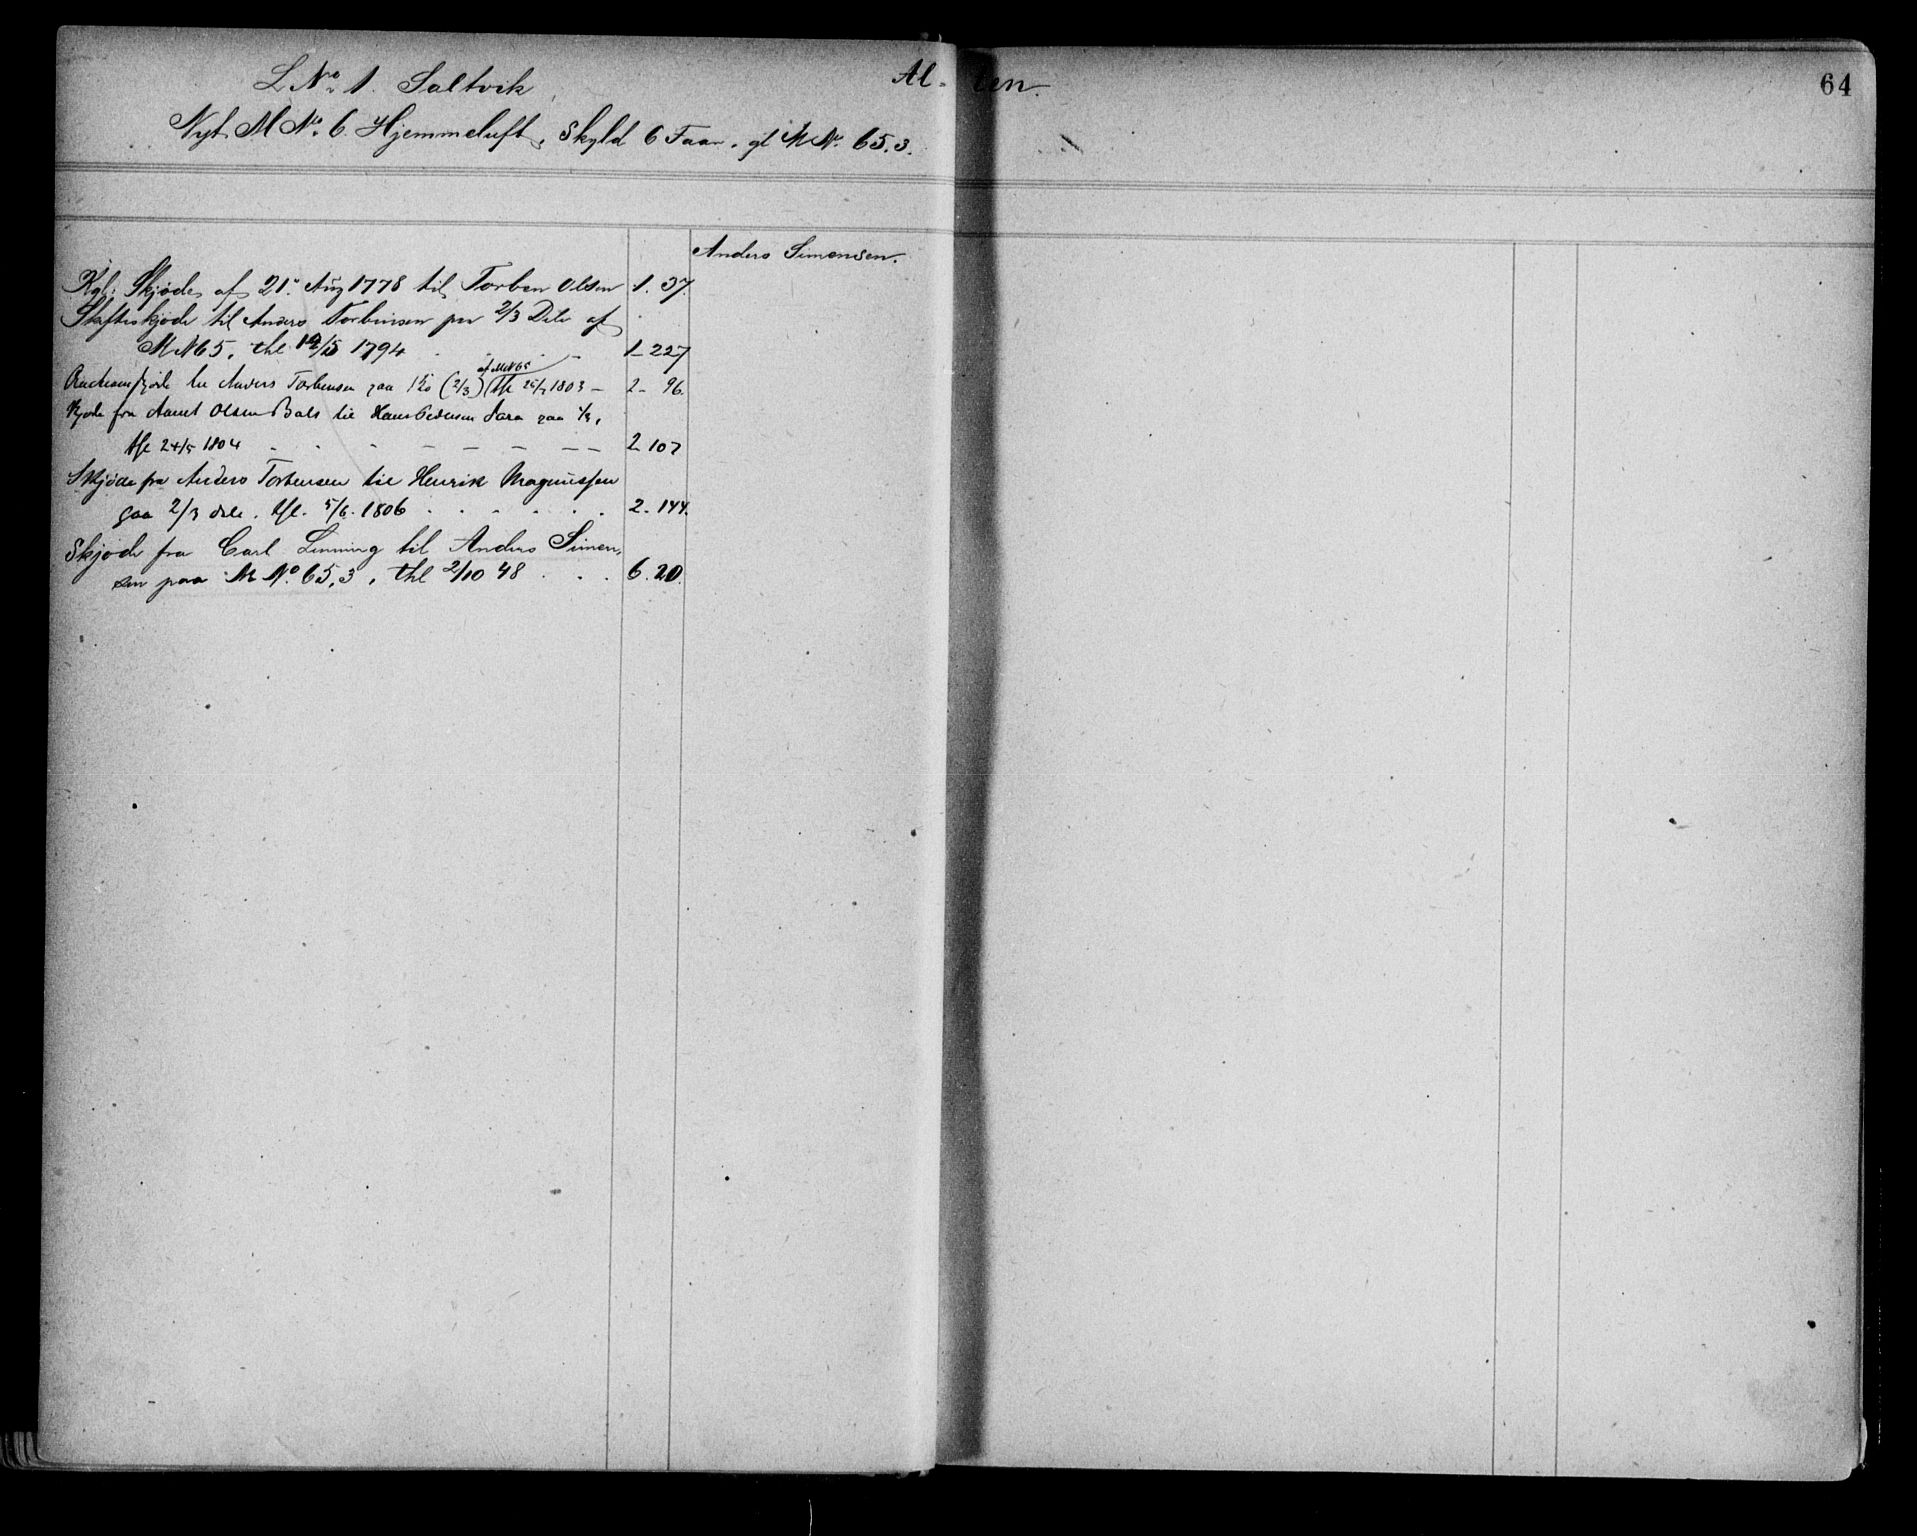 L No 1. Saltvik
Al-ten.
64
Nyt M No. 6 Hjemmeluft, Skyld 6 Faar. gl M No. 65.3.
Anders Simensen.
Kgl: Skjøde af 21. Aug 1778 til Torben Olsen 1. 37.
Skifteskjøde til Anders Torbensen paa 2/3 Dele af
M N 65, thl 1794 1-227
af M N 65
til Anders Torbensen paa (2/3) 1803 - 2- 96.
Skjøde fra Olsen Bals til Hans Pedersen Sara paa 1/3,
thl 24/5 1804 2-107
Skjøde fra Anders Torbensen til Henrik Magnussen
paa 2/3 dele. thl. 5/6. 1806 2-144.
Skjøde fra Carl Linning til Anders Simen-
sen paa M No. 65,3, thl 2/10 48 6.20.